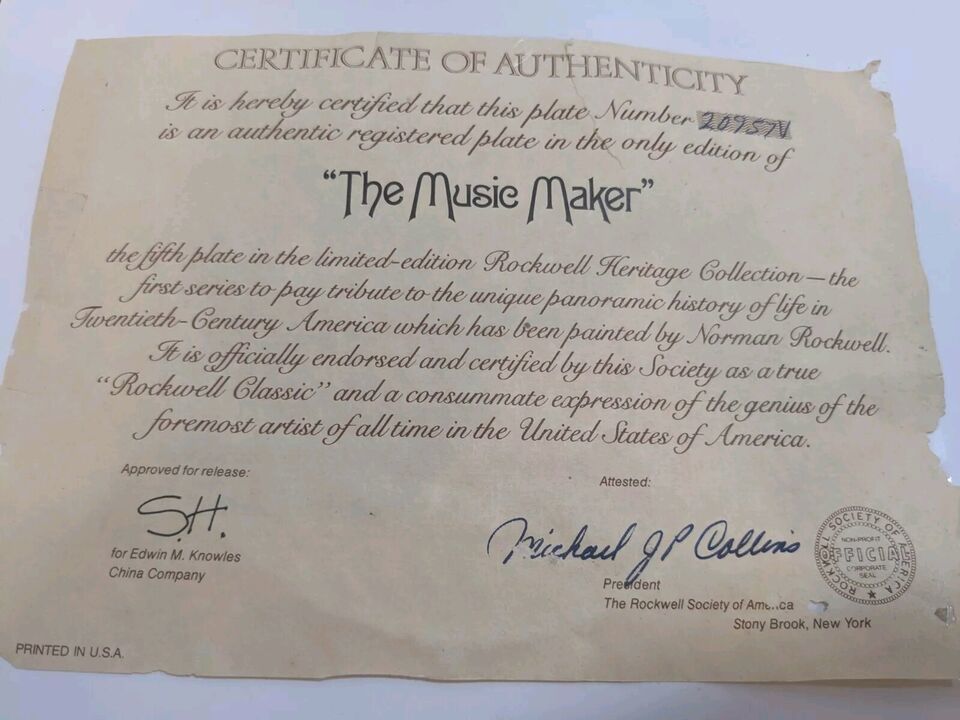 CERTIFICATE OF AUTHENTICITY
It is hereby certified that this plate Number 20957V
is an authentic registered plate in the only edition of
“The Music Maker”
the fifth plate in the limited-edition Rockwell Heritage Collection — the
first series to pay tribute to the unique panoramic history of life in
Twentieth-Century America which has been painted by Norman Rockwell.
It is officially endorsed and certified by this Society as a true
“Rockwell Classic” and a consummate expression of the genius of the
foremost artist of all time in the United States of America.
Approved for release:
S.H.
for Edwin M. Knowles
China Company
Attested:
Michael JP Collins
President
The Rockwell Society of America
Stony Brook, New York
ROCKWELL SOCIETY OF AMERICA
NON-PROFIT
OFFICIAL
CORPORATE
SEAL
PRINTED IN U.S.A.